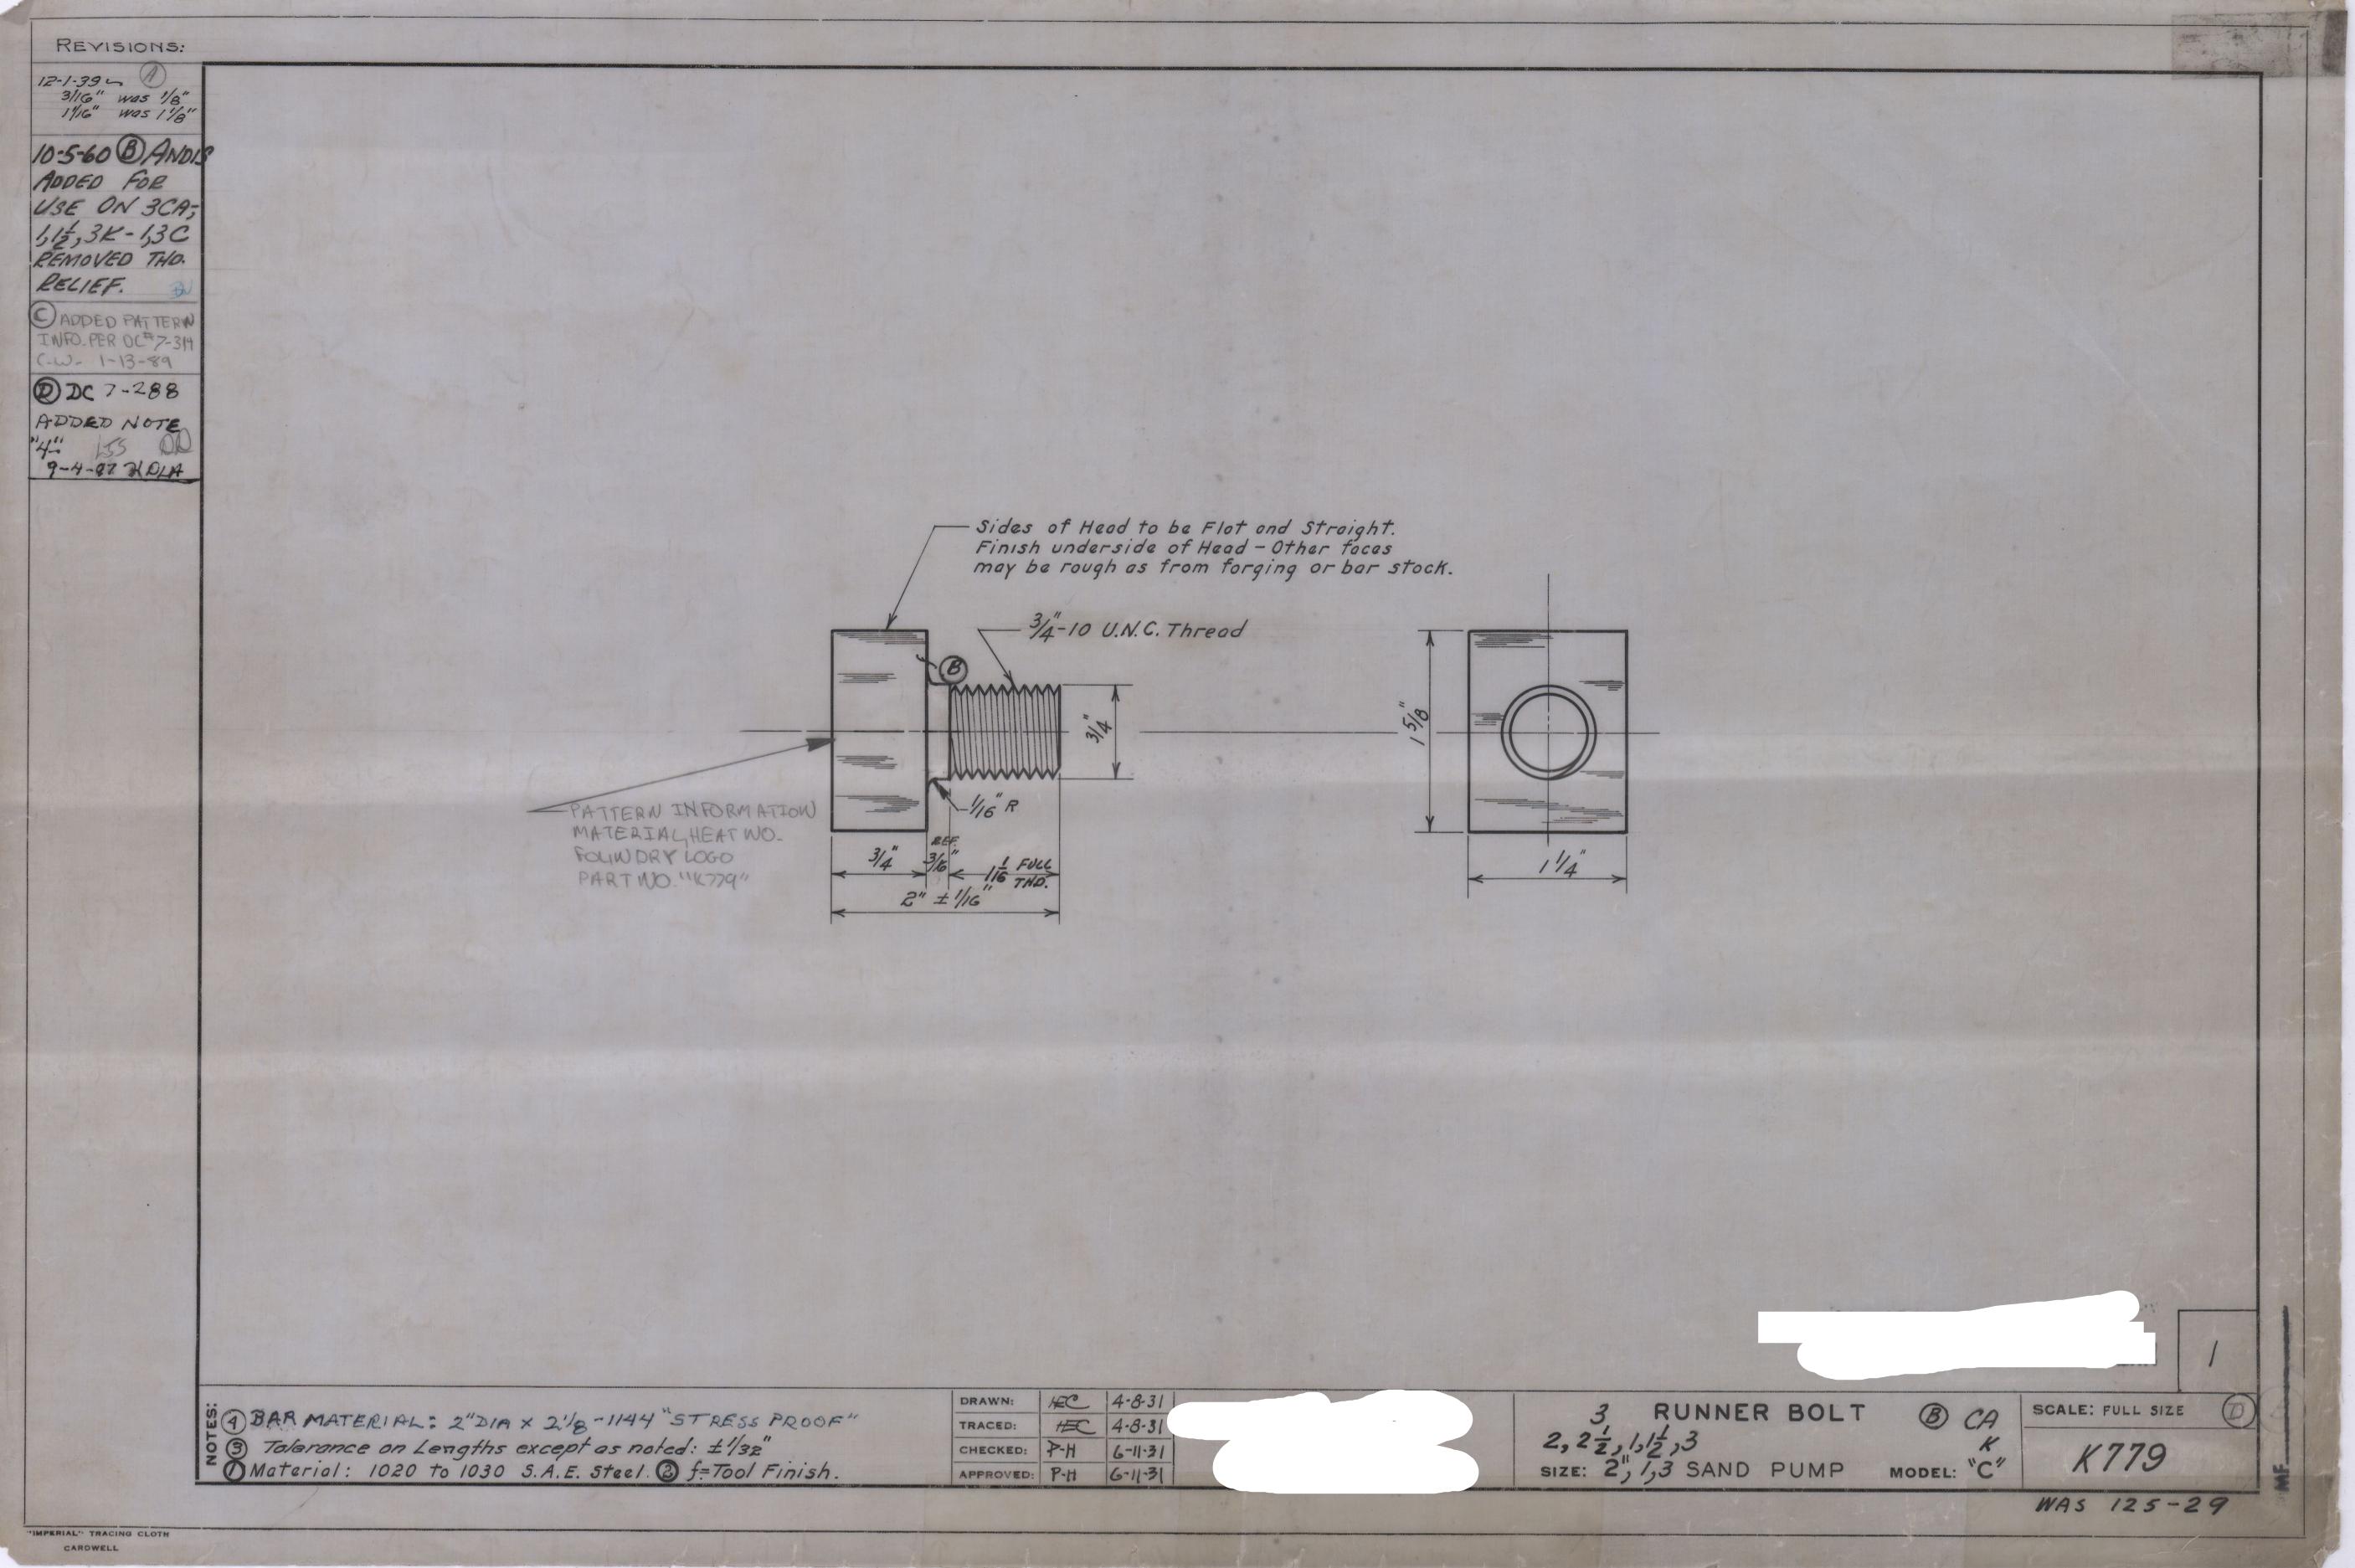 REVISIONS:
12-1-39 A
3/16" was 1/8"
1 1/16" was 1 1/8"
10-5-60 B ANDIS
ADDED FOR
USE ON 3CA;
1,1½,3K-1,3C
REMOVED THD.
RELIEF.
C ADDED PATTERN
INFO. PER DC#7-314
C.W. 1-13-89
D DC 7-288
ADDED NOTE
"4"
9-4-87 KDLA
Sides of Head to be Flat and Straight.
Finish underside of Head - Other faces
may be rough as from forging or bar stock.
3/4"-10 U.N.C. Thread
f
B
3/4"
1 5/8"
1/16" R
PATTERN INFORMATION
MATERIAL, HEAT NO.
FOUNDRY LOGO
PART NO. "K779"
REF.
3/4" 3/16" 1 1/16" FULL THD.
2" ± 1/16"
1 1/4"
1
NOTES:
4 BAR MATERIAL: 2" DIA x 2 1/8 - 1144 "STRESS PROOF"
3 Tolerance on Lengths except as noted: ± 1/32"
1 Material: 1020 to 1030 S.A.E. Steel. 2 f=Tool Finish.
DRAWN: HEC 4-8-31
TRACED: HEC 4-8-31
CHECKED: P-H 6-11-31
APPROVED: P-H 6-11-31
3 RUNNER BOLT B CA
2, 2½, 1, 1½, 3 K
SIZE: 2", 1,3 SAND PUMP MODEL: "C"
SCALE: FULL SIZE D
K779
WAS 125-29
MF
"IMPERIAL" TRACING CLOTH
CARDWELL